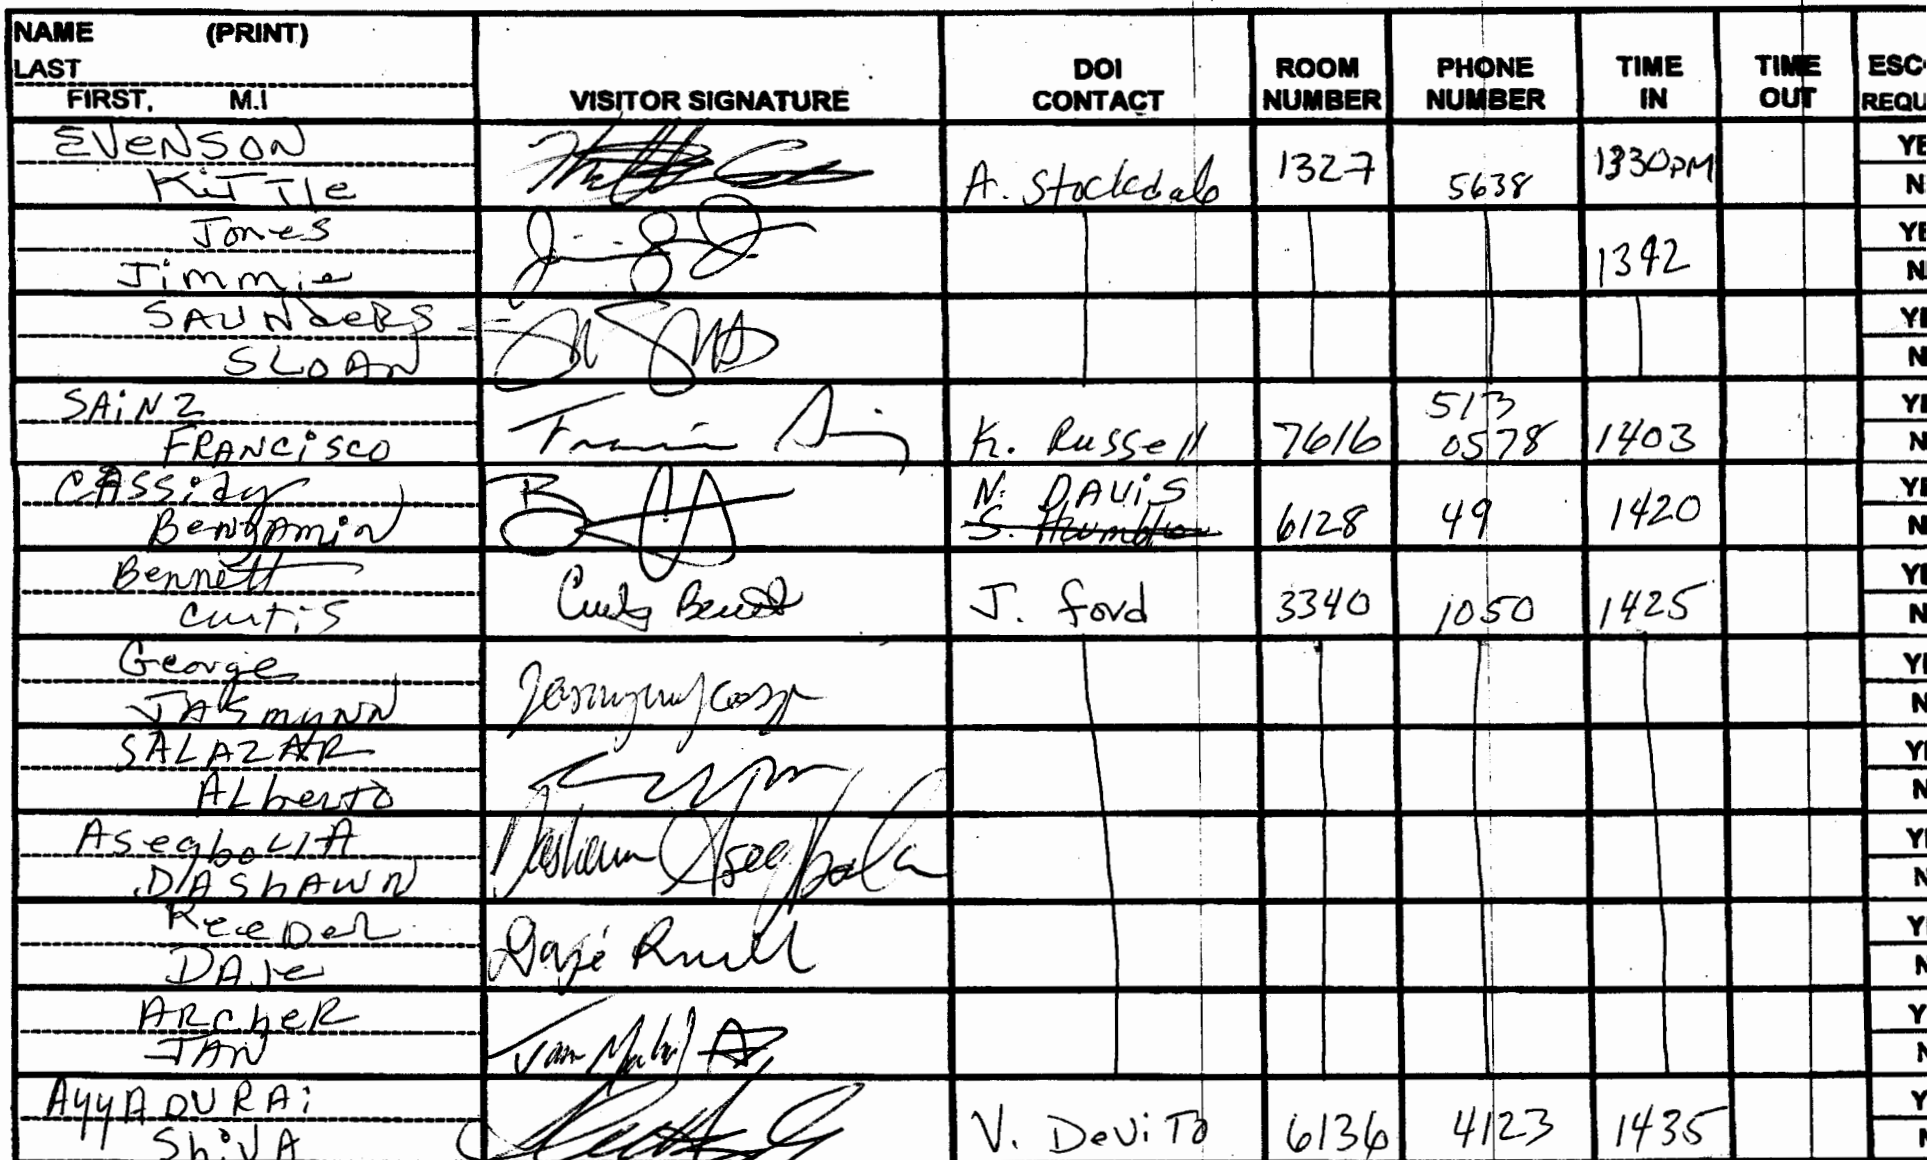 NAME (PRINT)
LAST
FIRST, M.I
VISITOR SIGNATURE
DOI CONTACT
ROOM NUMBER
PHONE NUMBER
TIME IN
TIME OUT
EVENSON
KiTTle
A. Stockdale 1327 5638 1330PM
YE
N
Jones
Jimmie
1342
YE
N
SAUNdeRS
SLOAN
YE
N
SAiNZ
FRANCiSCO
K. Russell 7616 513 0578 1403
YE
N
CASSidy
Benjamin
N. DAViS
6128 49 1420
YE
N
Bennett
Curtis
Curtis Bennett
J. ford 3340 1050 1425
YE
N
George
JASmyNN
YE
N
SALAZAR
ALberto
YE
N
DAShAWN
Dashawn
YE
N
ReeDer
DAJe
Daje
YE
N
ARcheR
JAN
Y
N
AyyADURAi
ShiVA
V. DeViTo 6136 4123 1435
Y
N